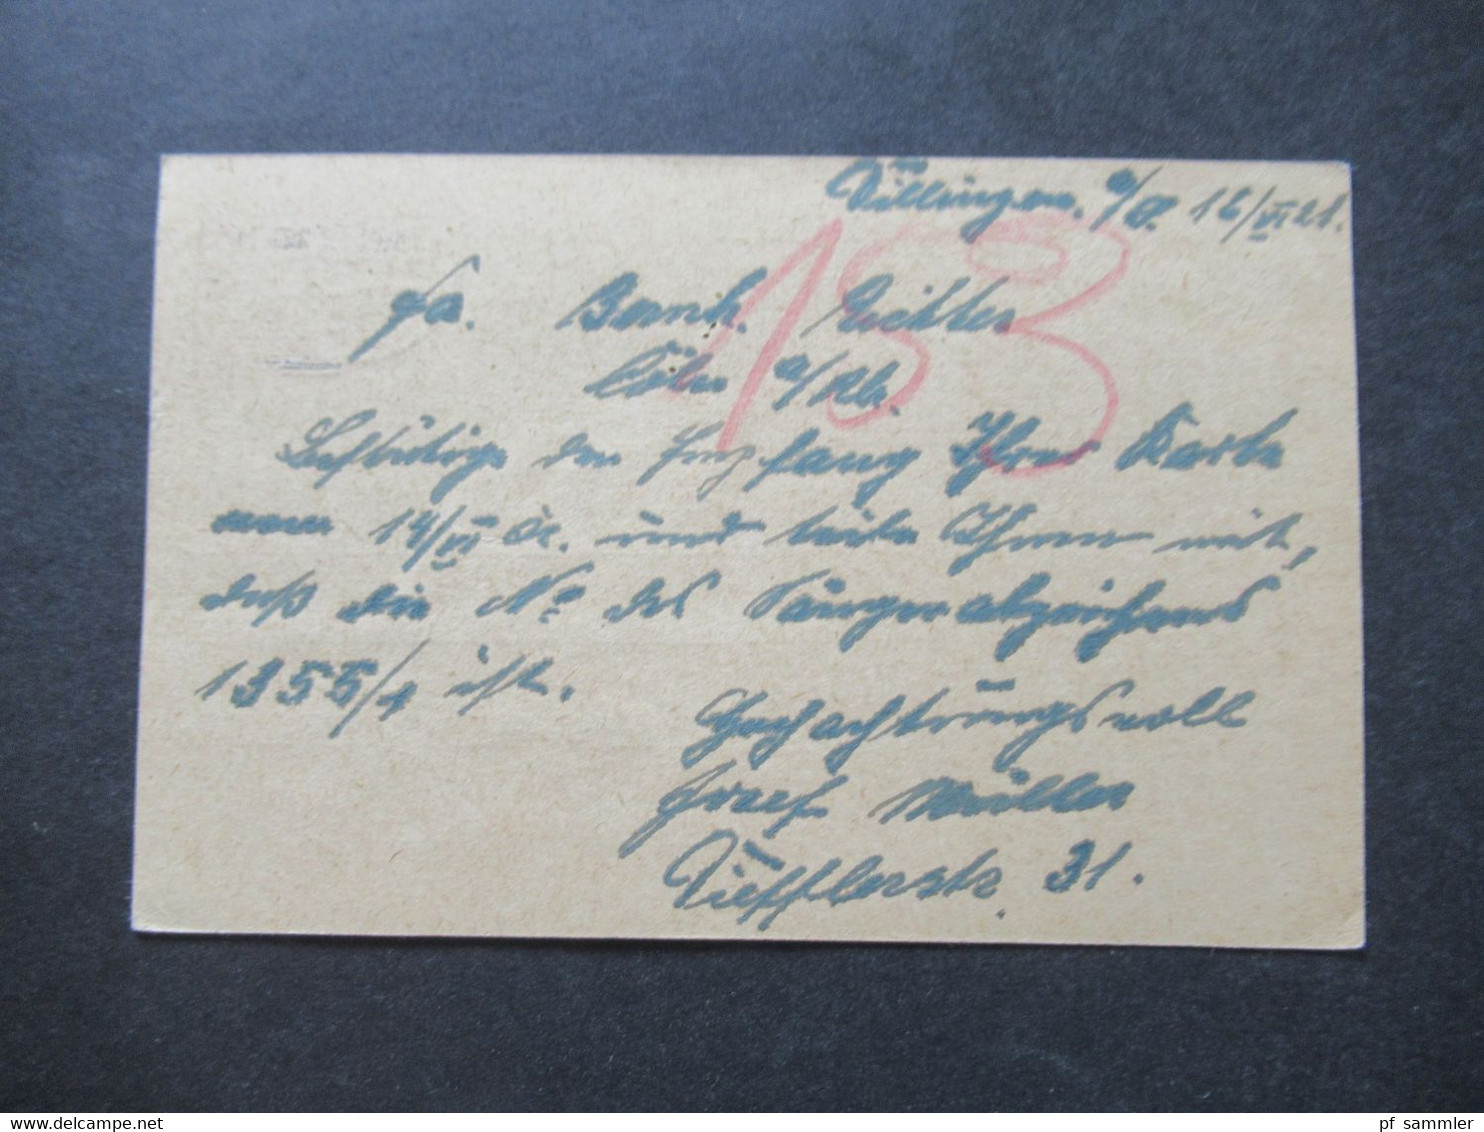 Dillingen a/D. 16/VI 21.
153
Fa. Bernh. Richter
Cöln a/Rh.
Bestätige den Empfang Ihrer Karte
vom 14/VI cr. und teile Ihnen mit,
daß die No des Sängerabzeichens
1355/4 ist.
Hochachtungsvoll
Josef Müller
31.
pf_sammler
delcampe.net